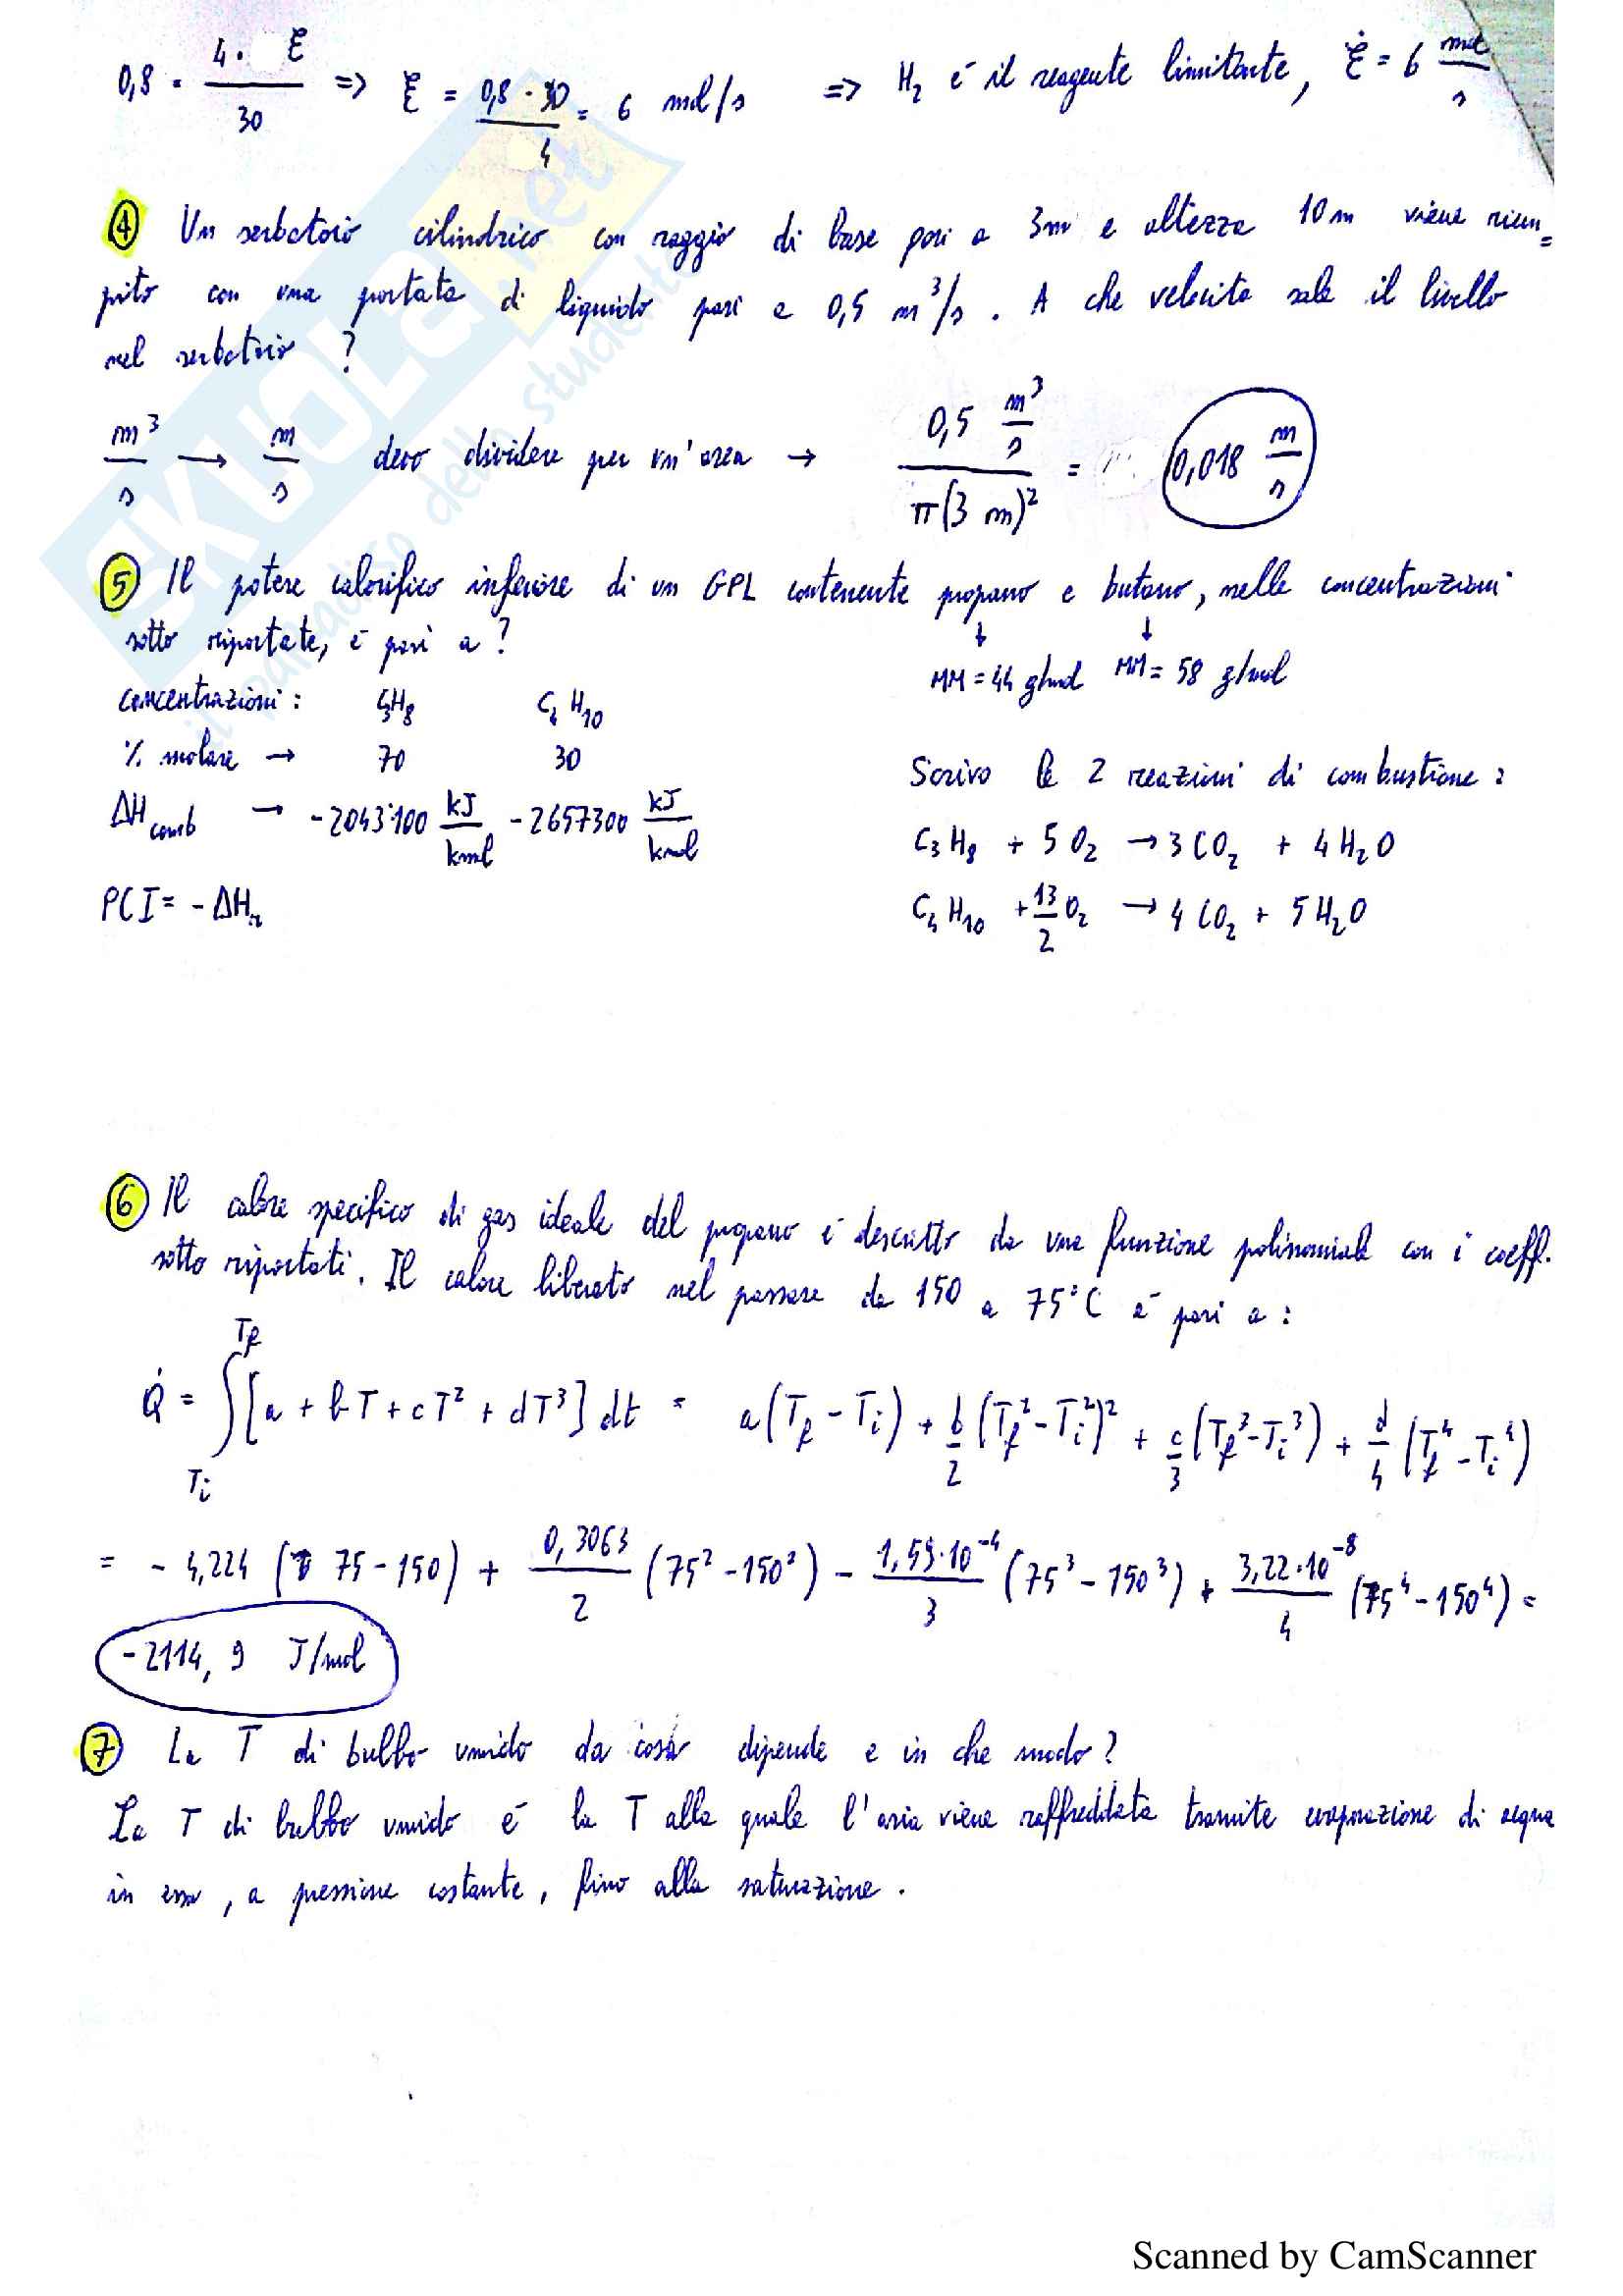 0,8 = 4· ξ / 30 => ξ = 0,8 · 30 / 4 = 6 mol/s => H₂ è il reagente limitante, ξ̇ = 6 mol/s
④ Un serbatoio cilindrico con raggio di base pari a 3m e altezza 10m viene riem=
pito con una portata di liquido pari a 0,5 m³/s. A che velocità sale il livello
nel serbatoio?
m³/s → m/s devo dividere per un'area → 0,5 m³/s / π(3 m)² = 0,018 m/s
⑤ Il potere calorifico inferiore di un GPL contenente propano e butano, nelle concentrazioni
sotto riportate, è pari a?
MM = 44 g/mol MM = 58 g/mol
concentrazioni: C₃H₈ C₄H₁₀
% molare → 70 30
Scrivo le 2 reazioni di combustione:
ΔHcomb → -2043100 kJ/kmol -2657300 kJ/kmol
C₃H₈ + 5O₂ → 3CO₂ + 4H₂O
PCI = -ΔHr
C₄H₁₀ + 13/2 O₂ → 4CO₂ + 5H₂O
⑥ Il calore specifico di gas ideale del propano è descritto da una funzione polinomiale con i coeff.
sotto riportati. Il calore liberato nel passare da 150 a 75°C è pari a:
Q̇ = ∫Ti^Tf [a + bT + cT² + dT³] dt = a(Tf - Ti) + b/2 (Tf² - Ti²)² + c/3 (Tf³ - Ti³) + d/4 (Tf⁴ - Ti⁴)
= - 4,224 (75 - 150) + 0,3063/2 (75² - 150²) - 1,59·10⁻⁴/3 (75³ - 150³) + 3,22·10⁻⁸/4 (75⁴ - 150⁴) =
-2114,9 J/mol
⑦ La T di bulbo umido da cosa dipende e in che modo?
La T di bulbo umido è la T alla quale l'aria viene raffreddata tramite evaporazione di acqua
in essa, a pressione costante, fino alla saturazione.
SKUOLA.net
il paradiso dello studente
Scanned by CamScanner